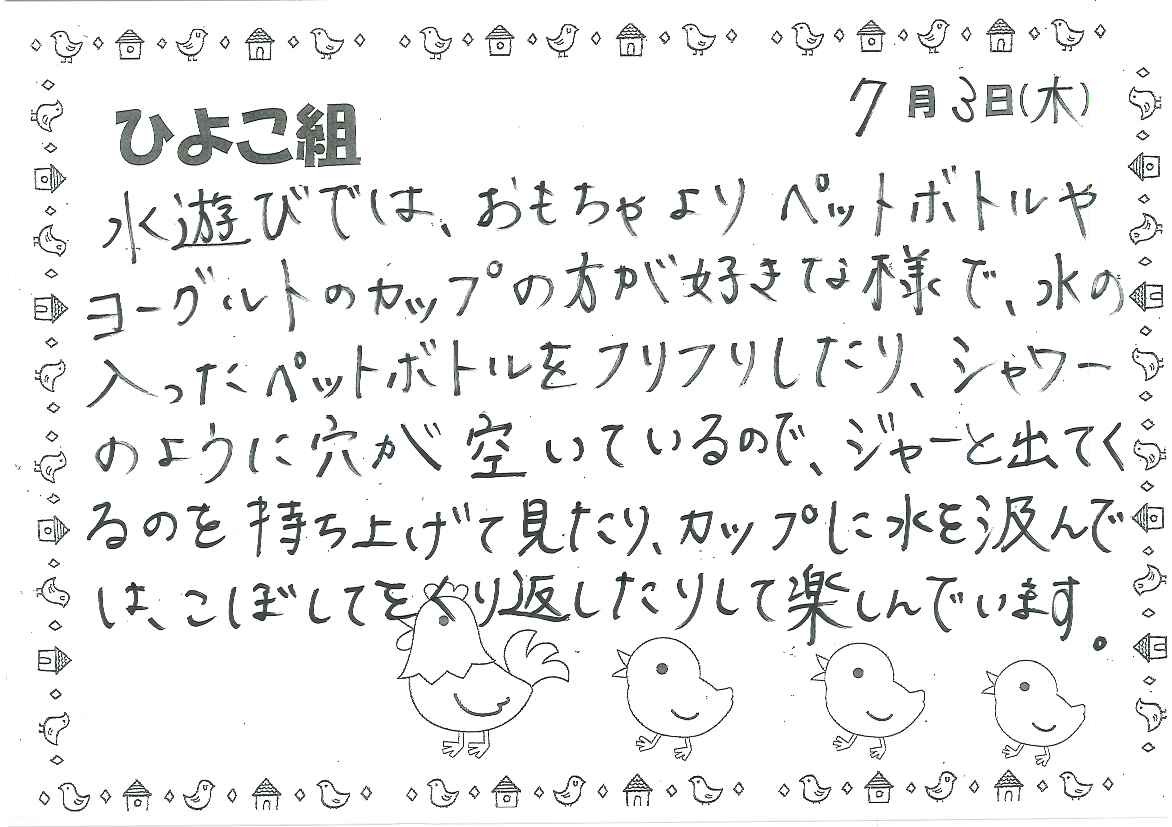 7月3日(木)
ひよこ組
水遊びでは、おもちゃよりペットボトルや
ヨーグルトのカップの方が好きな様で、水の
入ったペットボトルをフリフリしたり、シャワー
のように穴が空いているので、ジャーと出てく
るのを持ち上げて見たり、カップに水を汲んで
は、こぼしてをくり返したりして楽しんでいます。